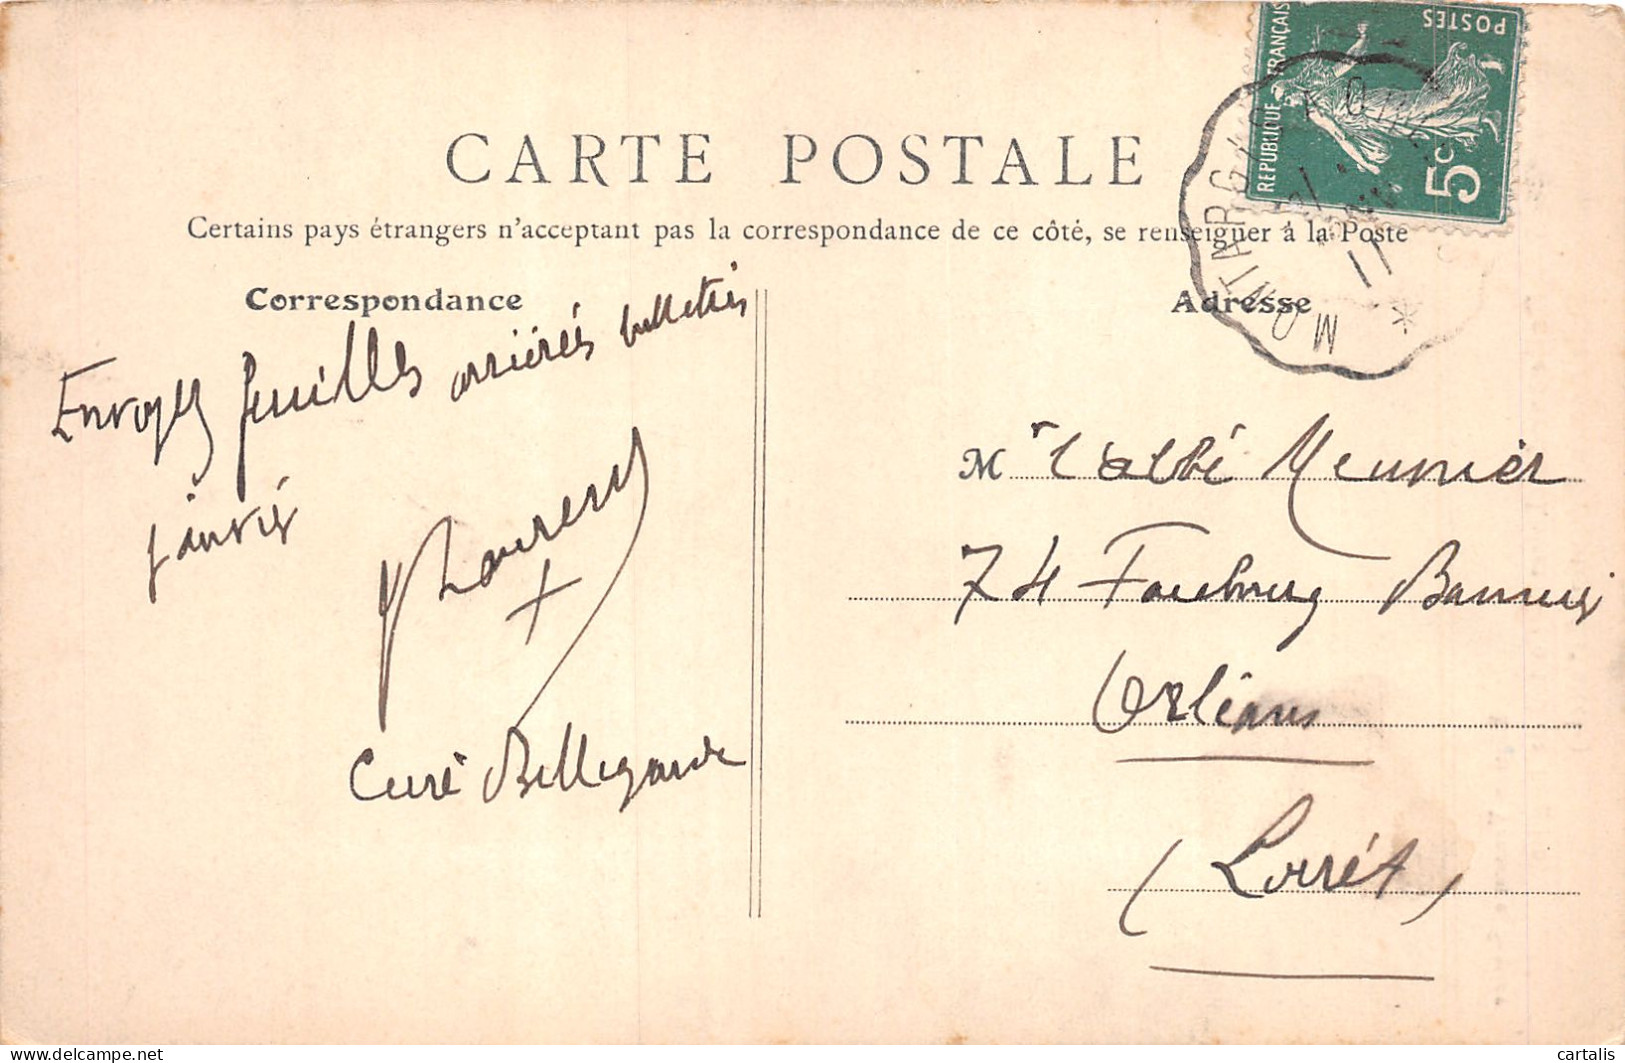 CARTE POSTALE
Certains pays étrangers n'acceptant pas la correspondance de ce côté, se renseigner à la Poste
Correspondance
Envoyez feuilles arriérés bulletins
janvier
Curé Bellegarde
Adresse
REPUBLIQUE FRANÇAISE
POSTES
5c
MONTARGIS
11
Mr l'abbé Meunier
74 Faubourg Bannier
Orléans
(Loiret)
delcampe.net
cartalis